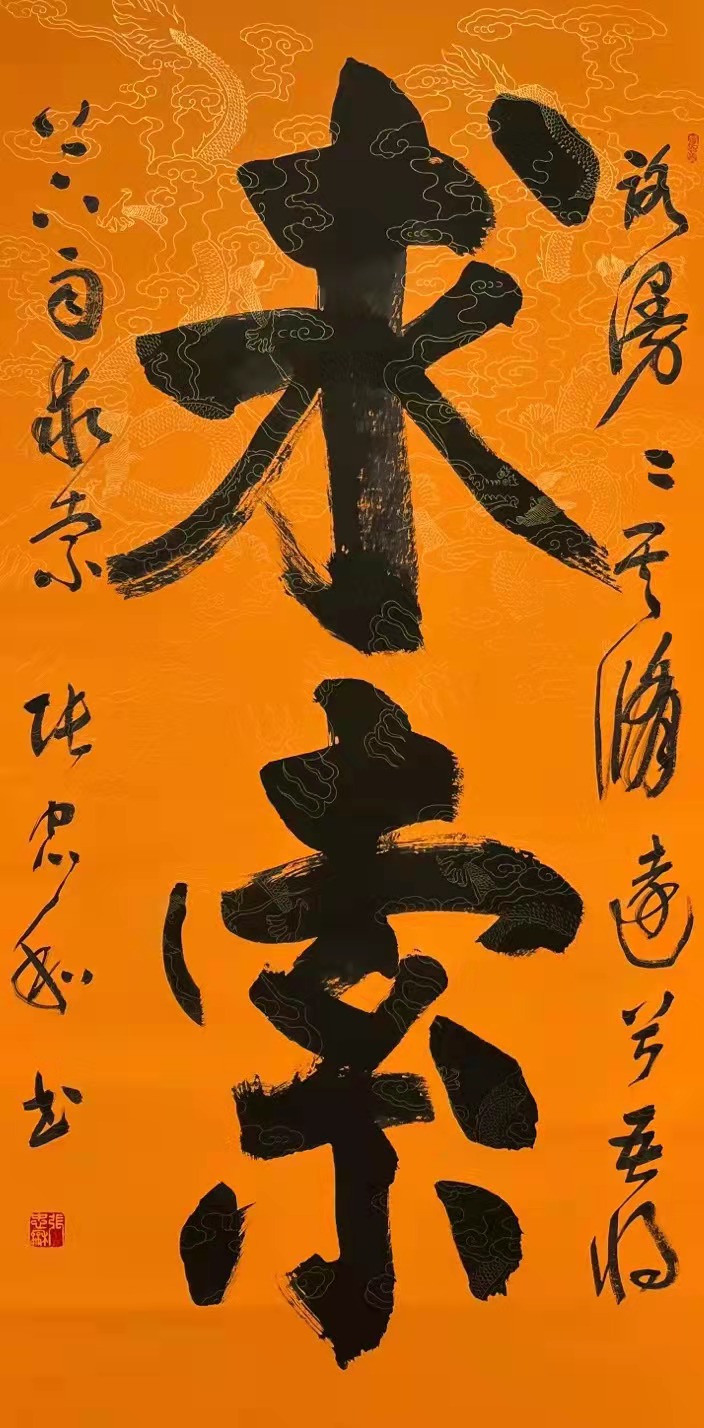 求索
路漫々其修遠兮吾将
上下而求索
张忠和书